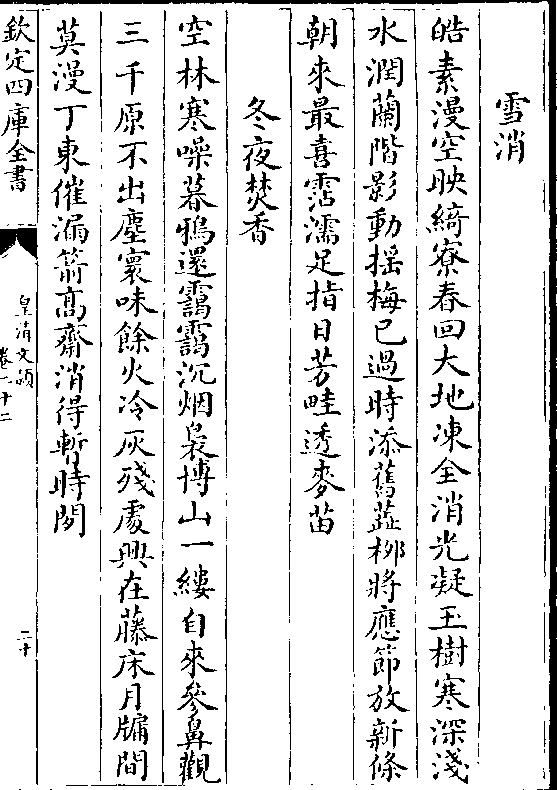 雪消
皓素漫空映綺寮春回大地凍全消光凝玉樹寒深淺
水潤蘭階影動揺梅已過時添舊蕋柳將應節放新條
朝來最喜霑濡足指日芳畦透麥苗
冬夜焚香
空林寒噪暮鴉還靄靄沉烟裊博山一縷自來參鼻觀
三千原不出塵寰味餘火冷灰殘處興在藤床月牖間
莫漫丁東催漏箭髙齋消得暫時閒
欽定四庫全書
皇清文頴
卷二十二
二十